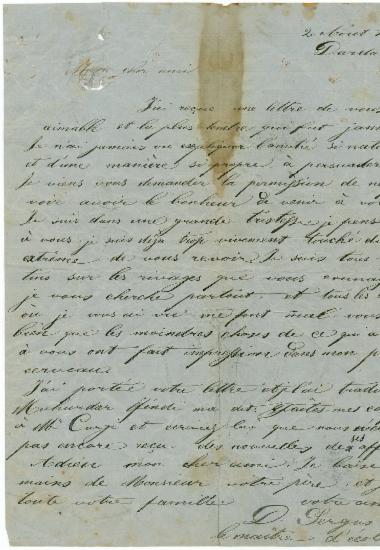 2 Août
Mon cher ami
J'ai reçue une lettre de vous
aimable et la plus tendre qui fut jam
Je n'ai jamais vu expliquer l'amitié si
et d'une manière si propre à persuader
Je viens vous demander la permission de
voir avoir le bonheur de venir à vo
Je suis dans une grande tristesse je pens
à vous je suis déja trop vivement touché de
extrème de vous revoir Je suis tous
sur les rivages que vous
je vous cherche partout et tous les
où je vous ai vu me font mal vous
bien que les moindres choses de ce qui a
à vous ont fait impression dans mon p
cerveau
J'ai portée votre lettre et je l'ai
ma dit faites mes co
à Mr et lui que nous
pas encore reçu des nouvelles de ses aff
Adieu mon cher ami Je baise
mains de Monsieur votre père et
toute votre famille votre am
D Sergus
le maître d'ecol